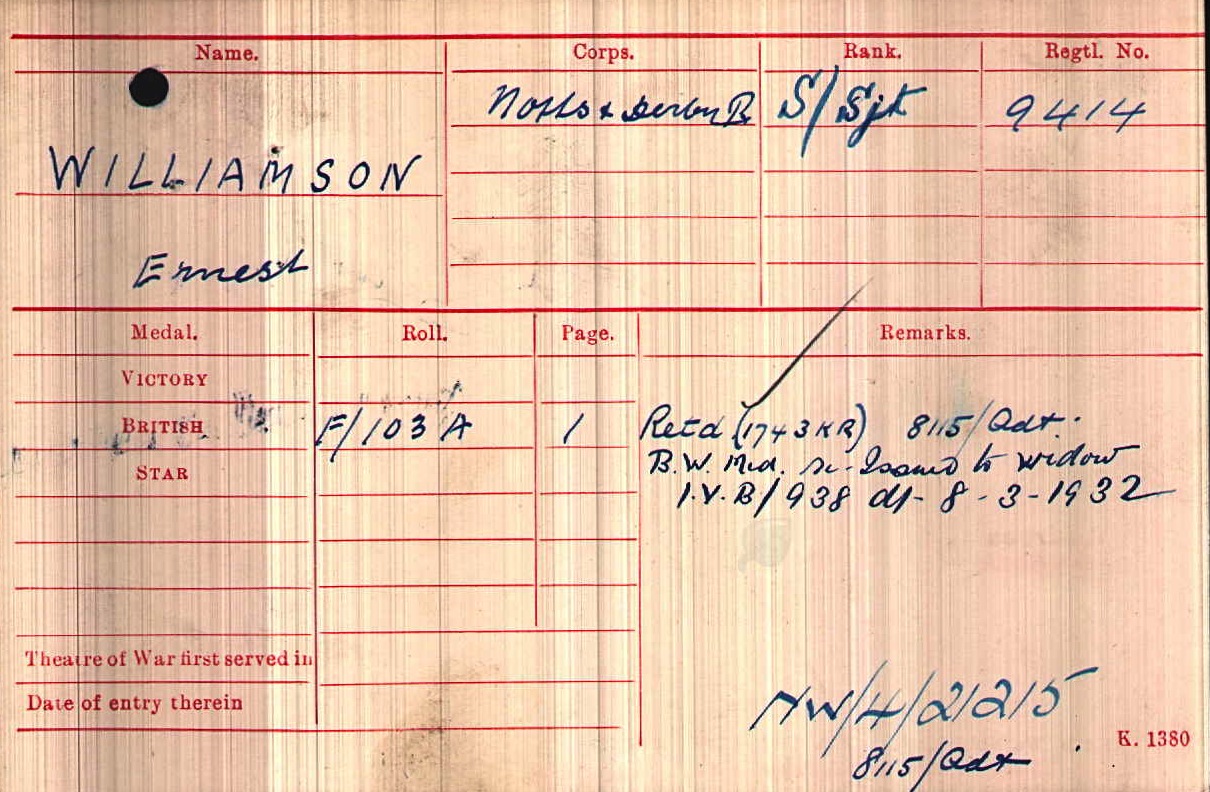 Name. Corps. Rank. Regtl. No.
Notts & Derby R S/Sjt 9414
WILLIAMSON
Ernest
Medal. Roll. Page. Remarks.
VICTORY
BRITISH F/103 A 1 Retd (1743 KR) 8115/Adt.
STAR B.W. Med. re-Issued to widow
I.V.B/938 dt- 8-3-1932
Theatre of War first served in
Date of entry therein
NW/4/21215
K. 1380
8115/Adt